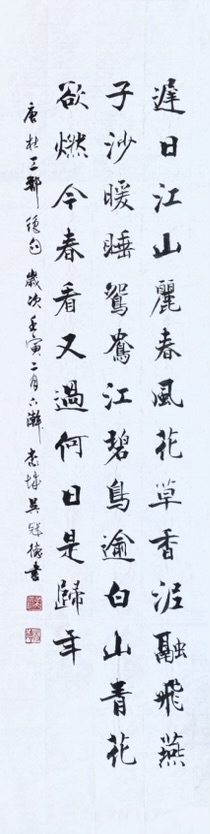 遲日江山麗春風花草香泥融飛燕
子沙暖睡鴛鴦江碧鳥逾白山青花
欲燃今春看又過何日是歸年
唐杜工部絕句歲次壬寅二月六吴德書